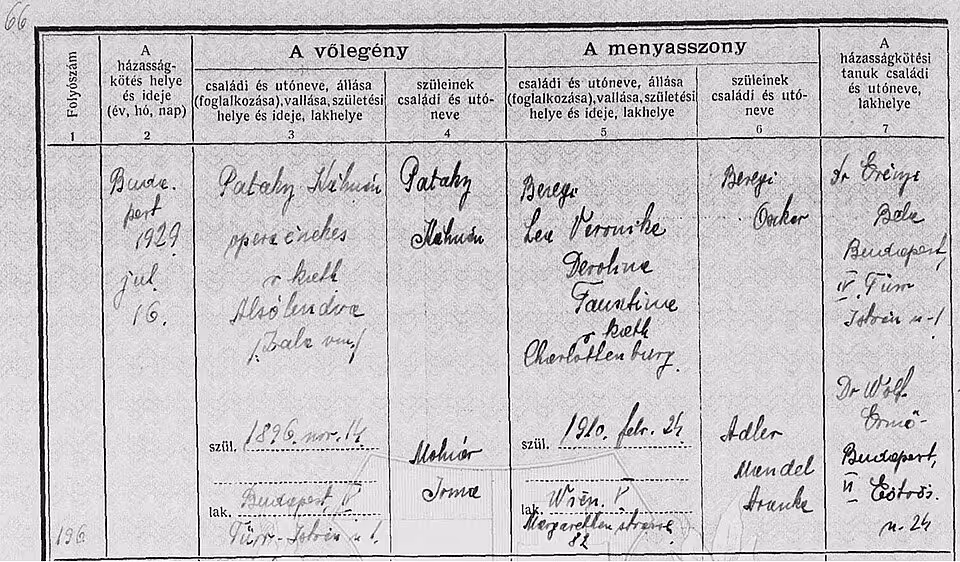 66
Folyószám
1
A
házasság-
kötés helye
és ideje
(év, hó, nap)
2
A vőlegény
családi és utóneve, állása
(foglalkozása), vallása, születési
helye és ideje, lakhelye
3
szüleinek
családi és utó-
neve
4
A menyasszony
családi és utóneve, állása
(foglalkozása), vallása, születési
helye és ideje, lakhelye
5
szüleinek
családi és utó-
neve
6
A
házasságkötési
tanuk családi
és utóneve,
lakhelye
7
196
Buda-
pest
1929
jul.
16.
Pataky Kálmán
opera énekes
r kath
Alsólendva
/: Zala vm :/
szül. 1896. nov. 14.
lak. Budapest, IV
Türr-István u 1.
Pataky
Kálmán
Molnár
Irma
Beregi
Lea Veronika
Carolina
Faustina
r kath
Charlottenburg.
szül. 1910. febr. 24
lak. Wien. V
Margarethen strasse
82
Beregi
Oszkár
Adler
Mendel
Aranka
Dr Erényi
Bela
Budapest,
IV. Türr
István u-1
Dr Wolf
Ernő-
Budapest,
II Eötvös.
u-24